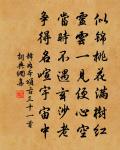 似錦桃花滿樹紅
靈雲一見便心空
當時不遇玄沙老
爭得名喧宇宙中
禪門本頌古三十一首
釋與褒禪